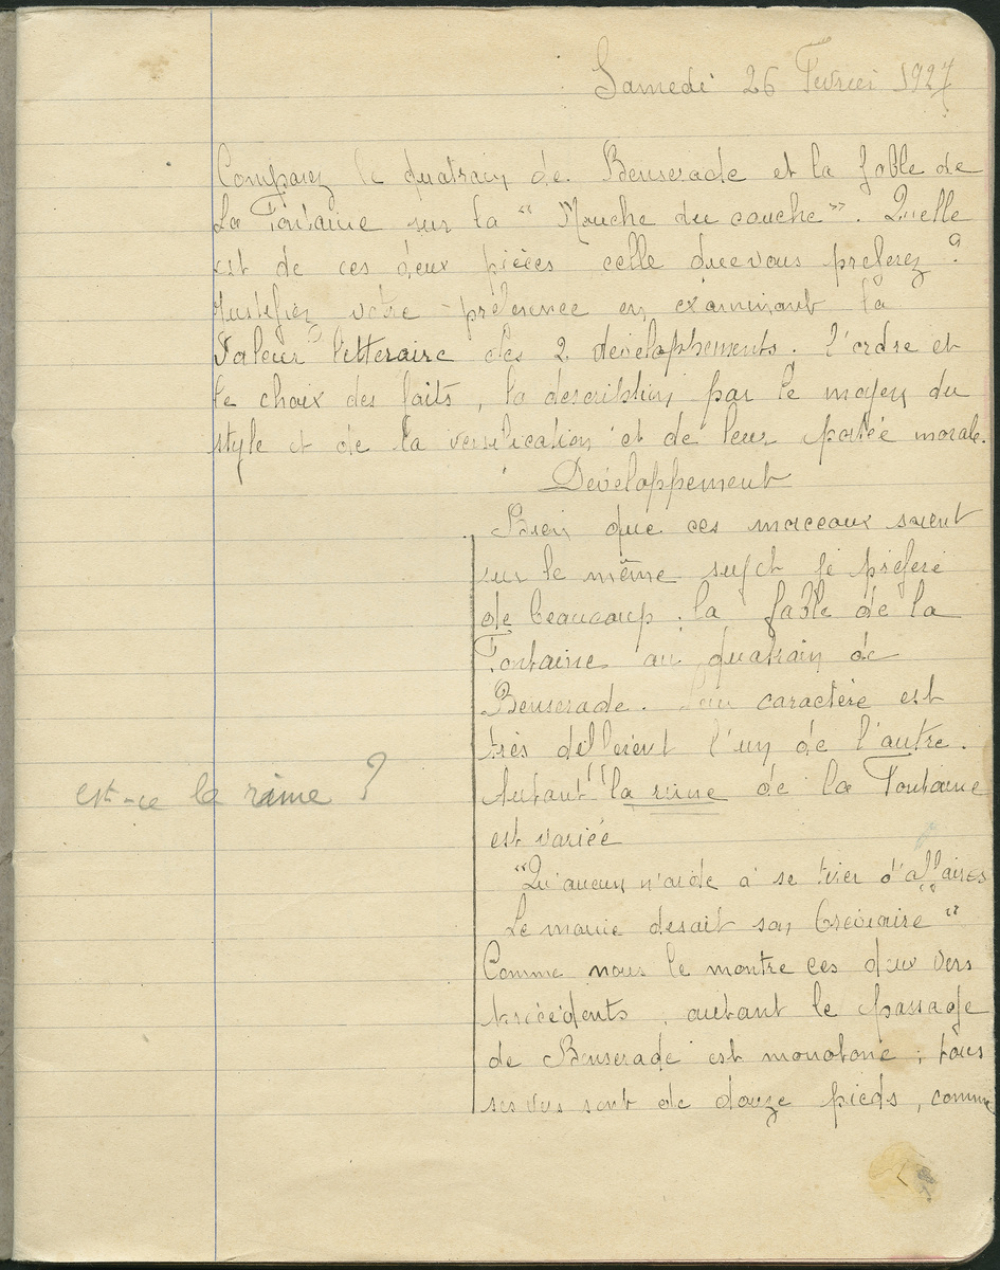 Samedi 26 Fevrier 1927
Comparez le quatrain de Benserade et la fable de
La Fontaine sur la " Mouche du couche ". Quelle
est de ces deux pièces celle que vous préferez ?
Justifiez votre préference en examinant la
Valeur litteraire des 2 developpements. l'ordre et
le choix des faits, la description par le moyen du
style et de la versification et de leur portée morale.
Developpement
Bien que ces morceaux soient
sur le même sujet je préfère
de beaucoup la fable de la
Fontaine au quatrain de
Benserade. Leur caractère est
très different l'un de l'autre.
est-ce la rime ?
Autant la rime de la Fontaine
est variée
"Qu'aucun n'aide à se tirer d'affaires
Le moine disait son Breviaire"
Comme nous le montre ces deux vers
précédents, autant le passage
de Benserade est monotone ; tous
ses vers sont de douze pieds, comme